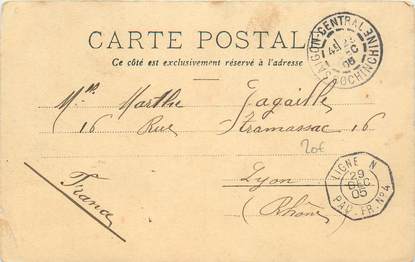 CARTE POSTALE
Ce côté est exclusivement réservé à l'adresse
SAIGON-CENTRAL
COCHINCHINE
Mlle Marthe Gagaille
16 Rue Tramassac 16
20€
Lyon
(Rhône)
France
LIGNE N
29
DEC
05
PAQ. FR. Nº4